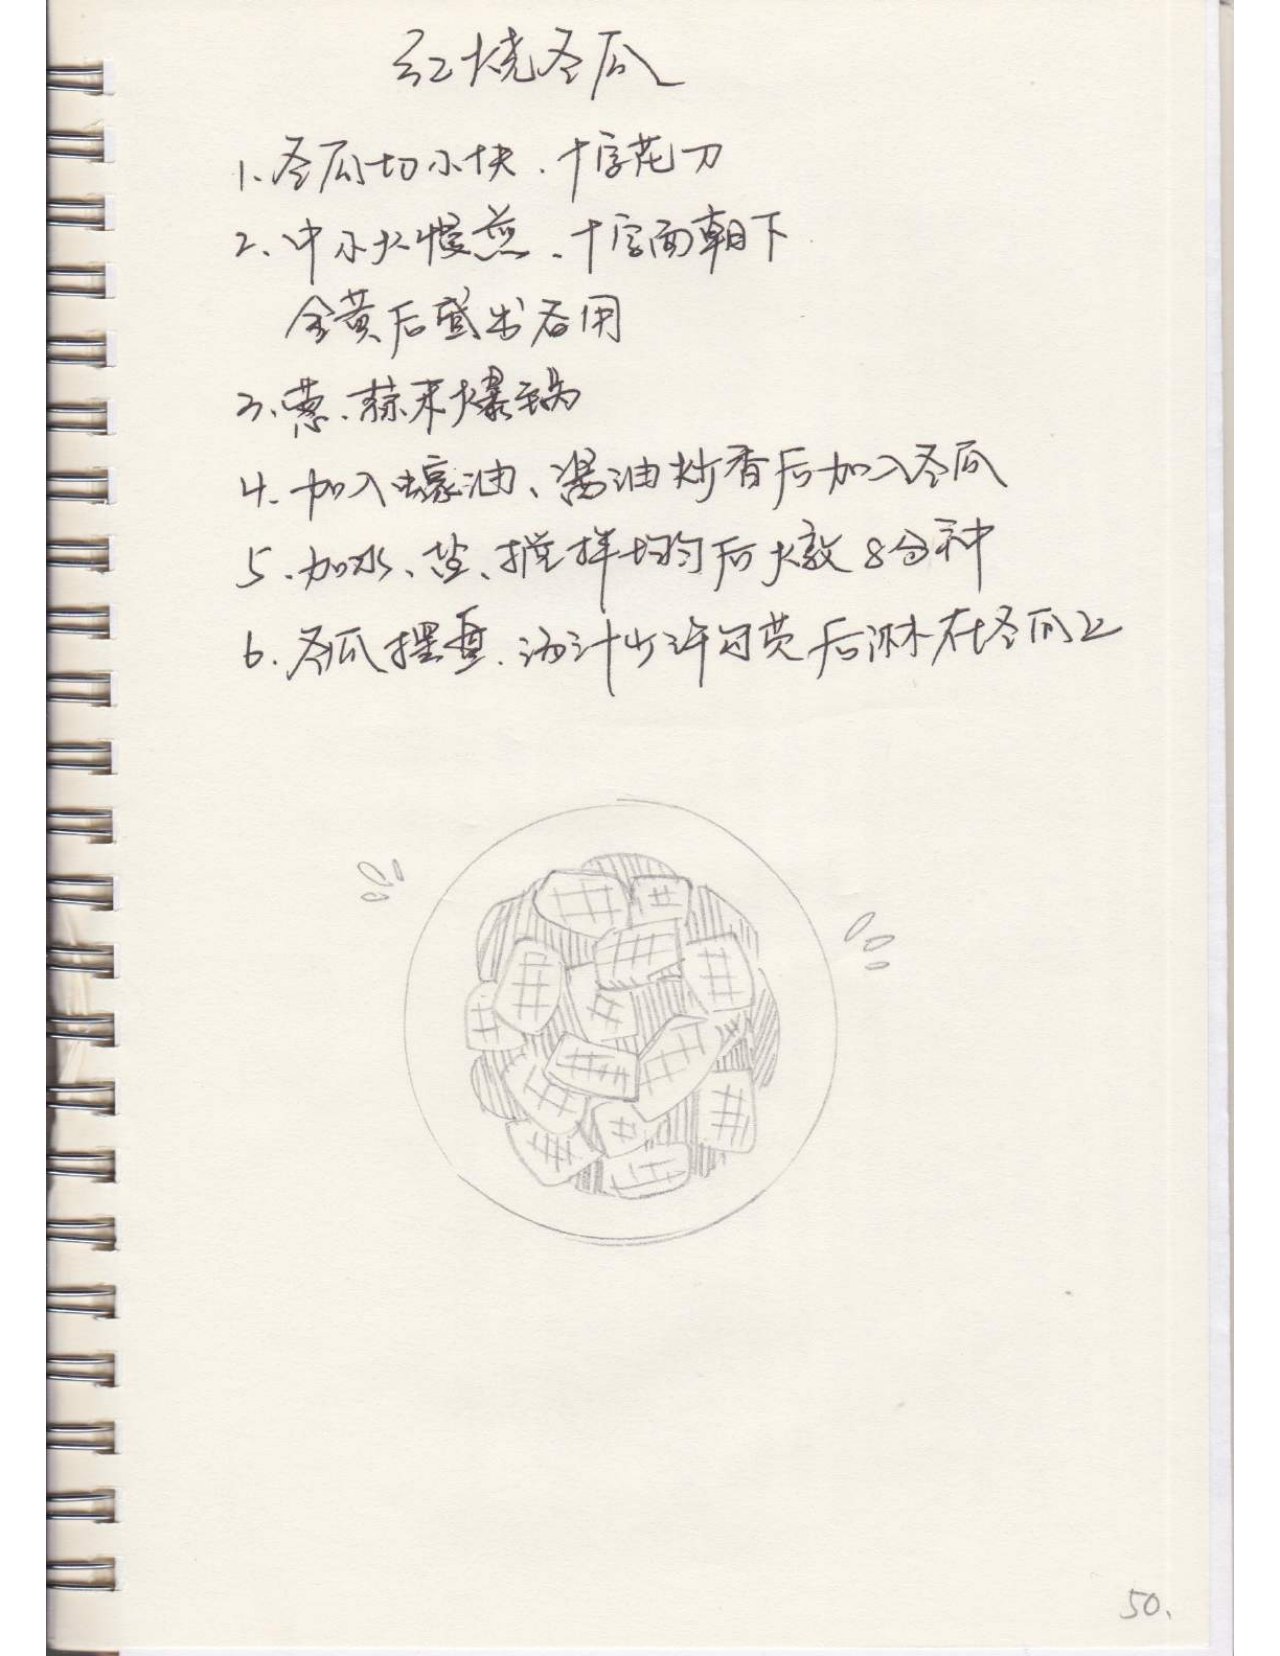 红烧冬瓜
1、冬瓜切小块、十字花刀
2、中小火慢煎、十字面朝下
金黄后盛出备用
3、葱、蒜末爆锅
4、加入蠔油、酱油炒香后加入冬瓜
5、加水、盐、搅拌均匀后火炖8分钟
6、冬瓜摆盘、汤汁少许勾芡后淋在冬瓜上
50、